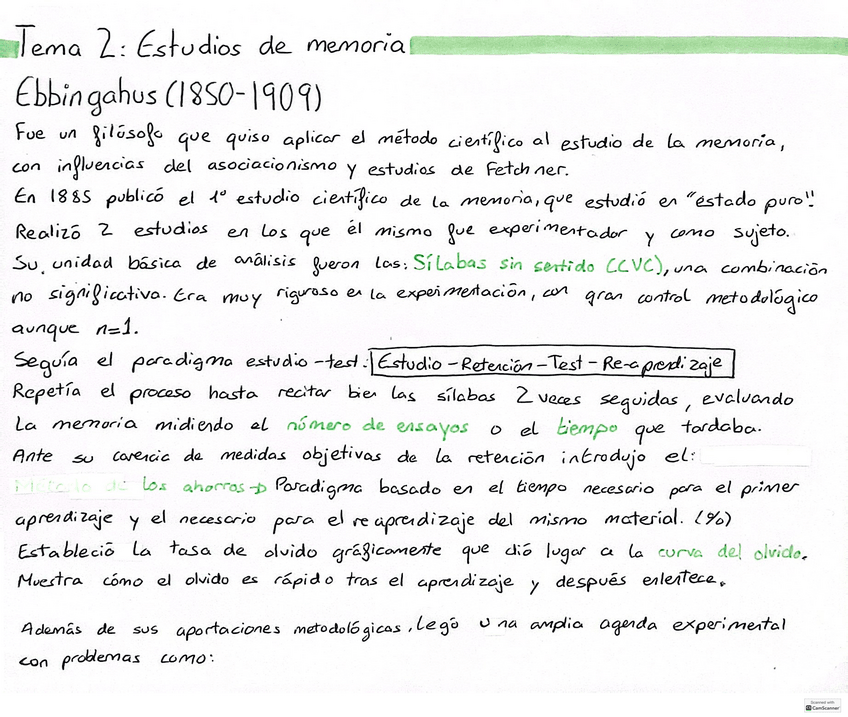 Tema 2: Estudios de memoria
Ebbingahus (1850-1909)
Fue un filósofo que quiso aplicar el método científico al estudio de la memoria,
con influencias del asociacionismo y estudios de Fetchner.
En 1885 publicó el 1º estudio científico de la memoria, que estudió en "estado puro".
Realizó 2 estudios en los que él mismo fue experimentador y como sujeto.
Su unidad básica de análisis fueron las: Sílabas sin sentido (CVC), una combinación
no significativa. Era muy riguroso en la experimentación, con gran control metodológico
aunque n=1.
Seguía el paradigma estudio-test: Estudio-Retención-Test-Re-aprendizaje
Repetía el proceso hasta recitar bien las sílabas 2 veces seguidas, evaluando
la memoria midiendo el número de ensayos o el tiempo que tardaba.
Ante su carencia de medidas objetivas de la retención introdujo el:
Método de los ahorros → Paradigma basado en el tiempo necesario para el primer
aprendizaje y el necesario para el reaprendizaje del mismo material. (%)
Estableció la tasa de olvido gráficamente que dió lugar a la curva del olvido.
Muestra cómo el olvido es rápido tras el aprendizaje y después enlentece.
Además de sus aportaciones metodológicas, legó una amplia agenda experimental
con problemas como:
Scanned with
CamScanner